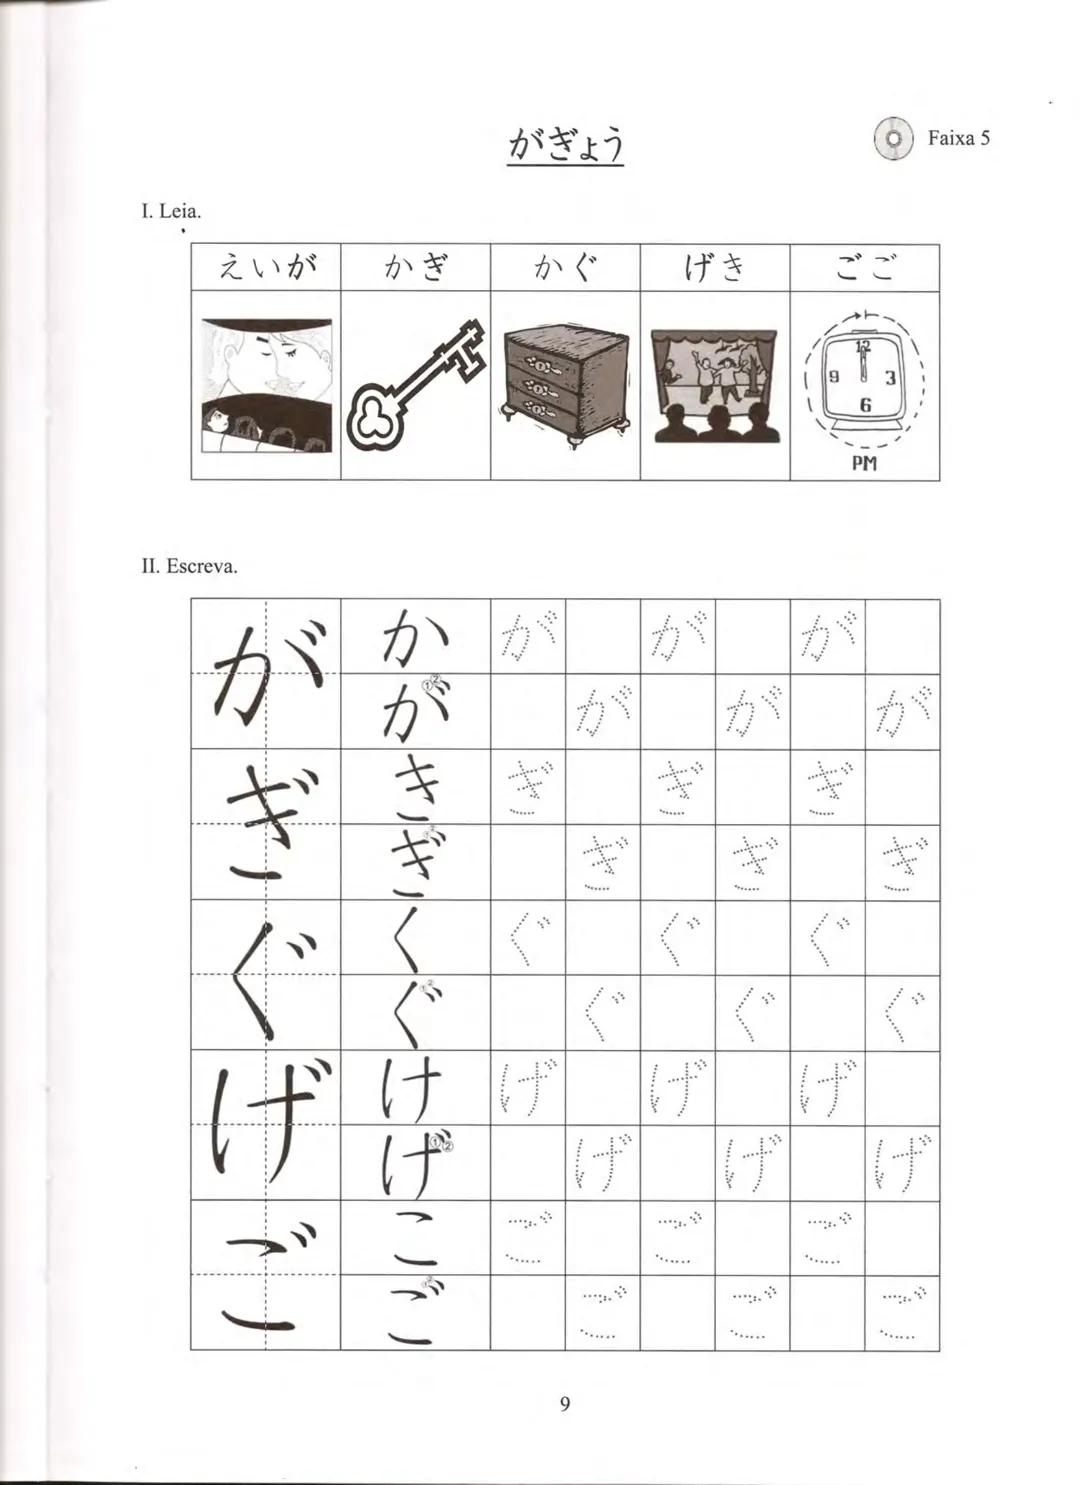 がぎょう
Faixa 5
I. Leia.
えいが かぎ かぐ げき ごご
12
9 3
6
PM
II. Escreva.
が か が が が
が ① ② が が が
ぎ き ぎ ぎ ぎ
ぎ ① ② ぎ ぎ ぎ
ぐ く ぐ ぐ ぐ
ぐ ① ② ぐ ぐ ぐ
げ け げ げ げ
げ ① ② げ げ げ
ご こ ご ご ご
ご ① ② ご ご ご
9